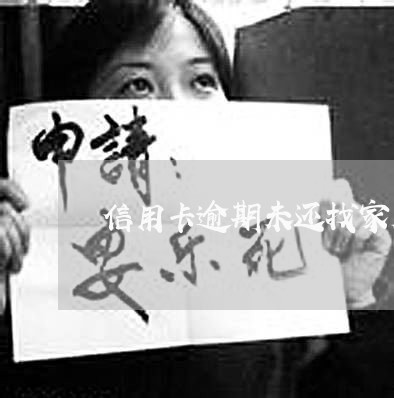 申請：
信用卡逾期未还找家
安乐死